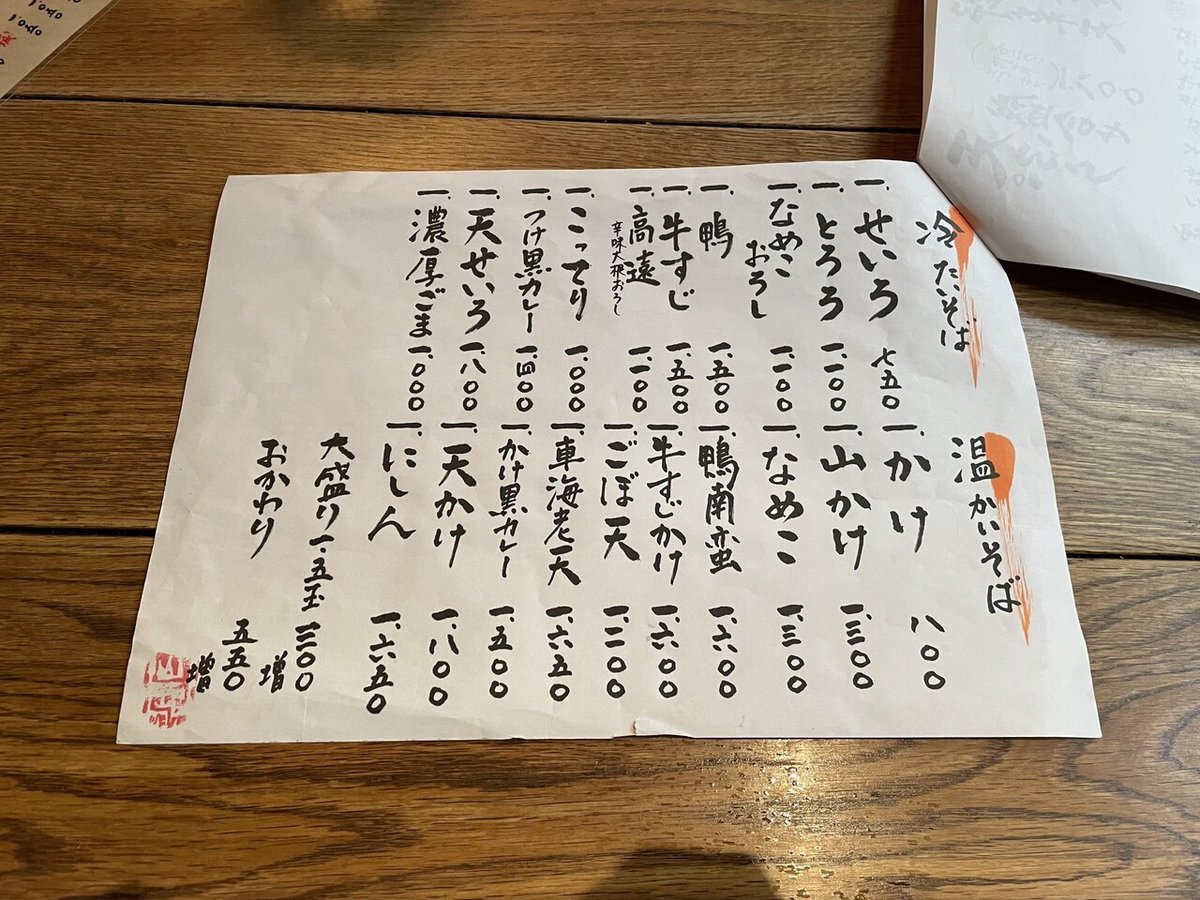 冷たいそば
一、せいろ 七五〇
一、とろろ 一、一〇〇
一、なめこおろし 一、一〇〇
一、鴨 一、五〇〇
一、牛すじ 一、五〇〇
一、高遠 一、一〇〇
辛味大根おろし
一、こってり 一、〇〇〇
一、つけ黒カレー 一、四〇〇
一、天せいろ 一、八〇〇
一、濃厚ごま 一、〇〇〇
温かいそば
一、かけ 八〇〇
一、山かけ 一、三〇〇
一、なめこ 一、三〇〇
一、鴨南蛮 一、六〇〇
一、牛すじかけ 一、六〇〇
一、ごぼ天 一、二〇〇
一、車海老天 一、六五〇
一、かけ黒カレー 一、五〇〇
一、天かけ 一、八〇〇
一、にしん 一、六五〇
大盛り一、五玉 三〇〇増
おかわり 五五〇増